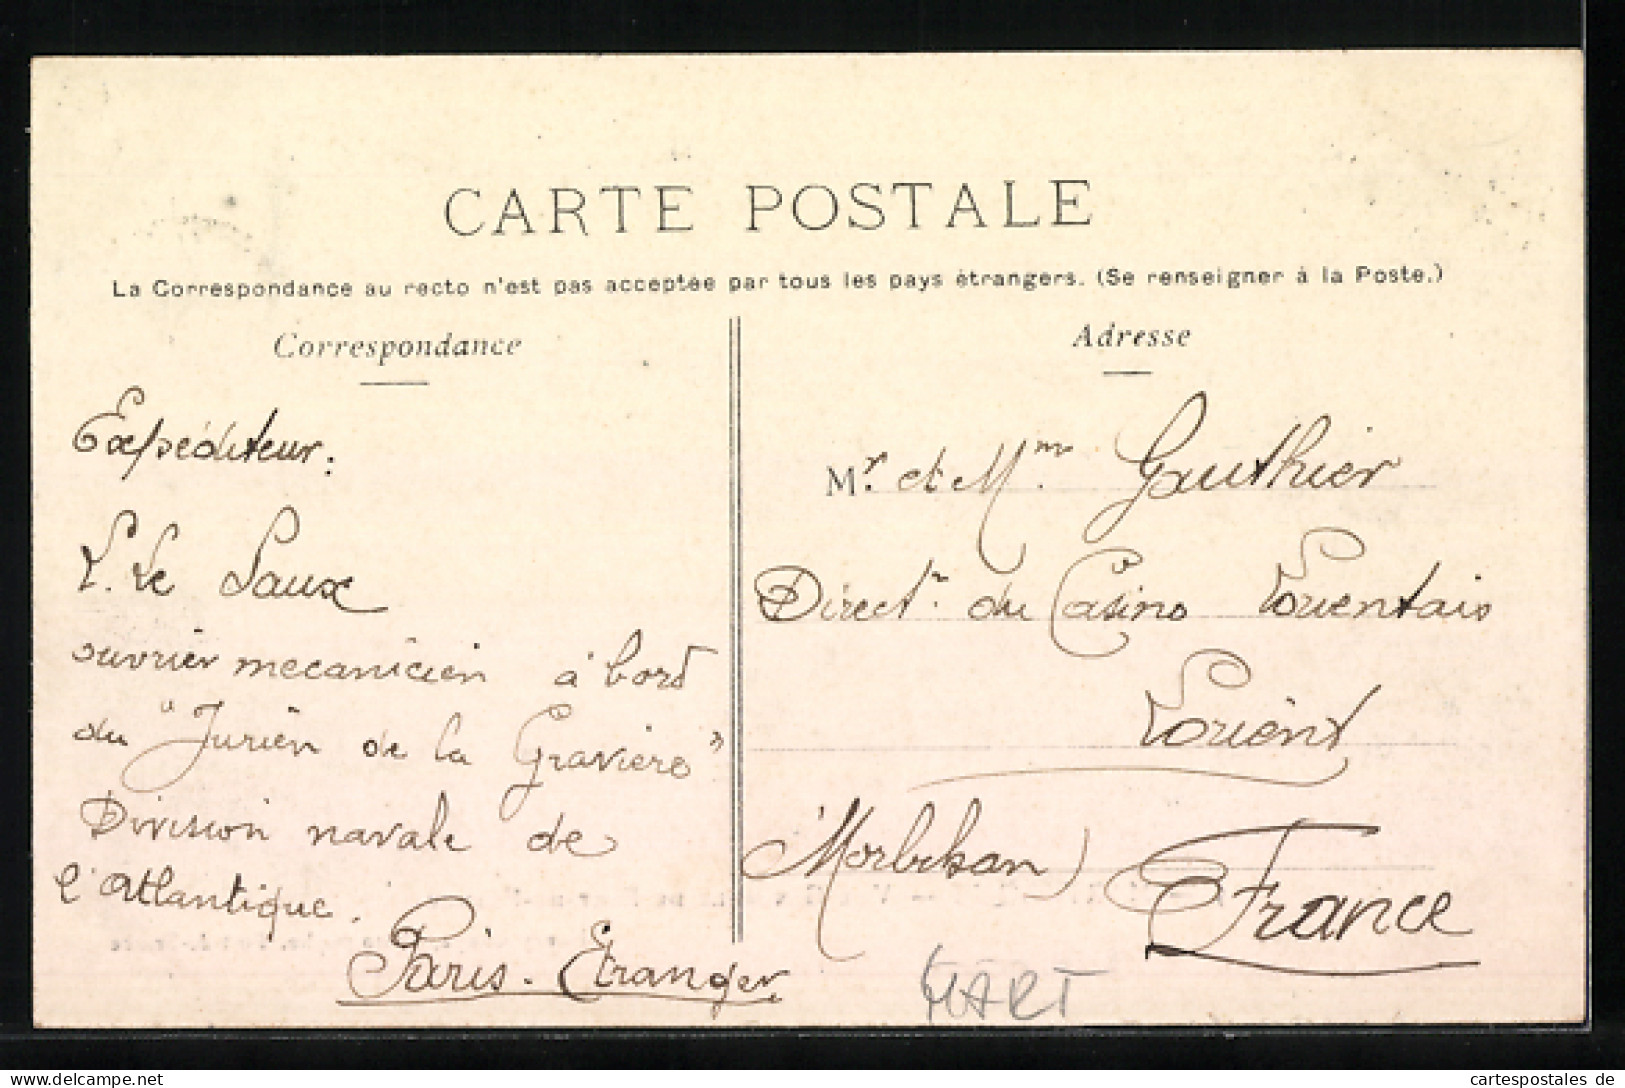 CARTE POSTALE
La Correspondance au recto n'est pas acceptée par tous les pays étrangers. (Se renseigner à la Poste.)
Correspondance
Expéditeur:
L. Le Saux
ouvrier mecanicien à bord
du "Jurien de la Gravière"
Division navale de
l'atlantique.
Paris - Etranger
Adresse
Mr. et Mm. Gauthier
Direct.r du Casino Lorientais
Lorient
(Morbihan)
France
MART
cartespostales de